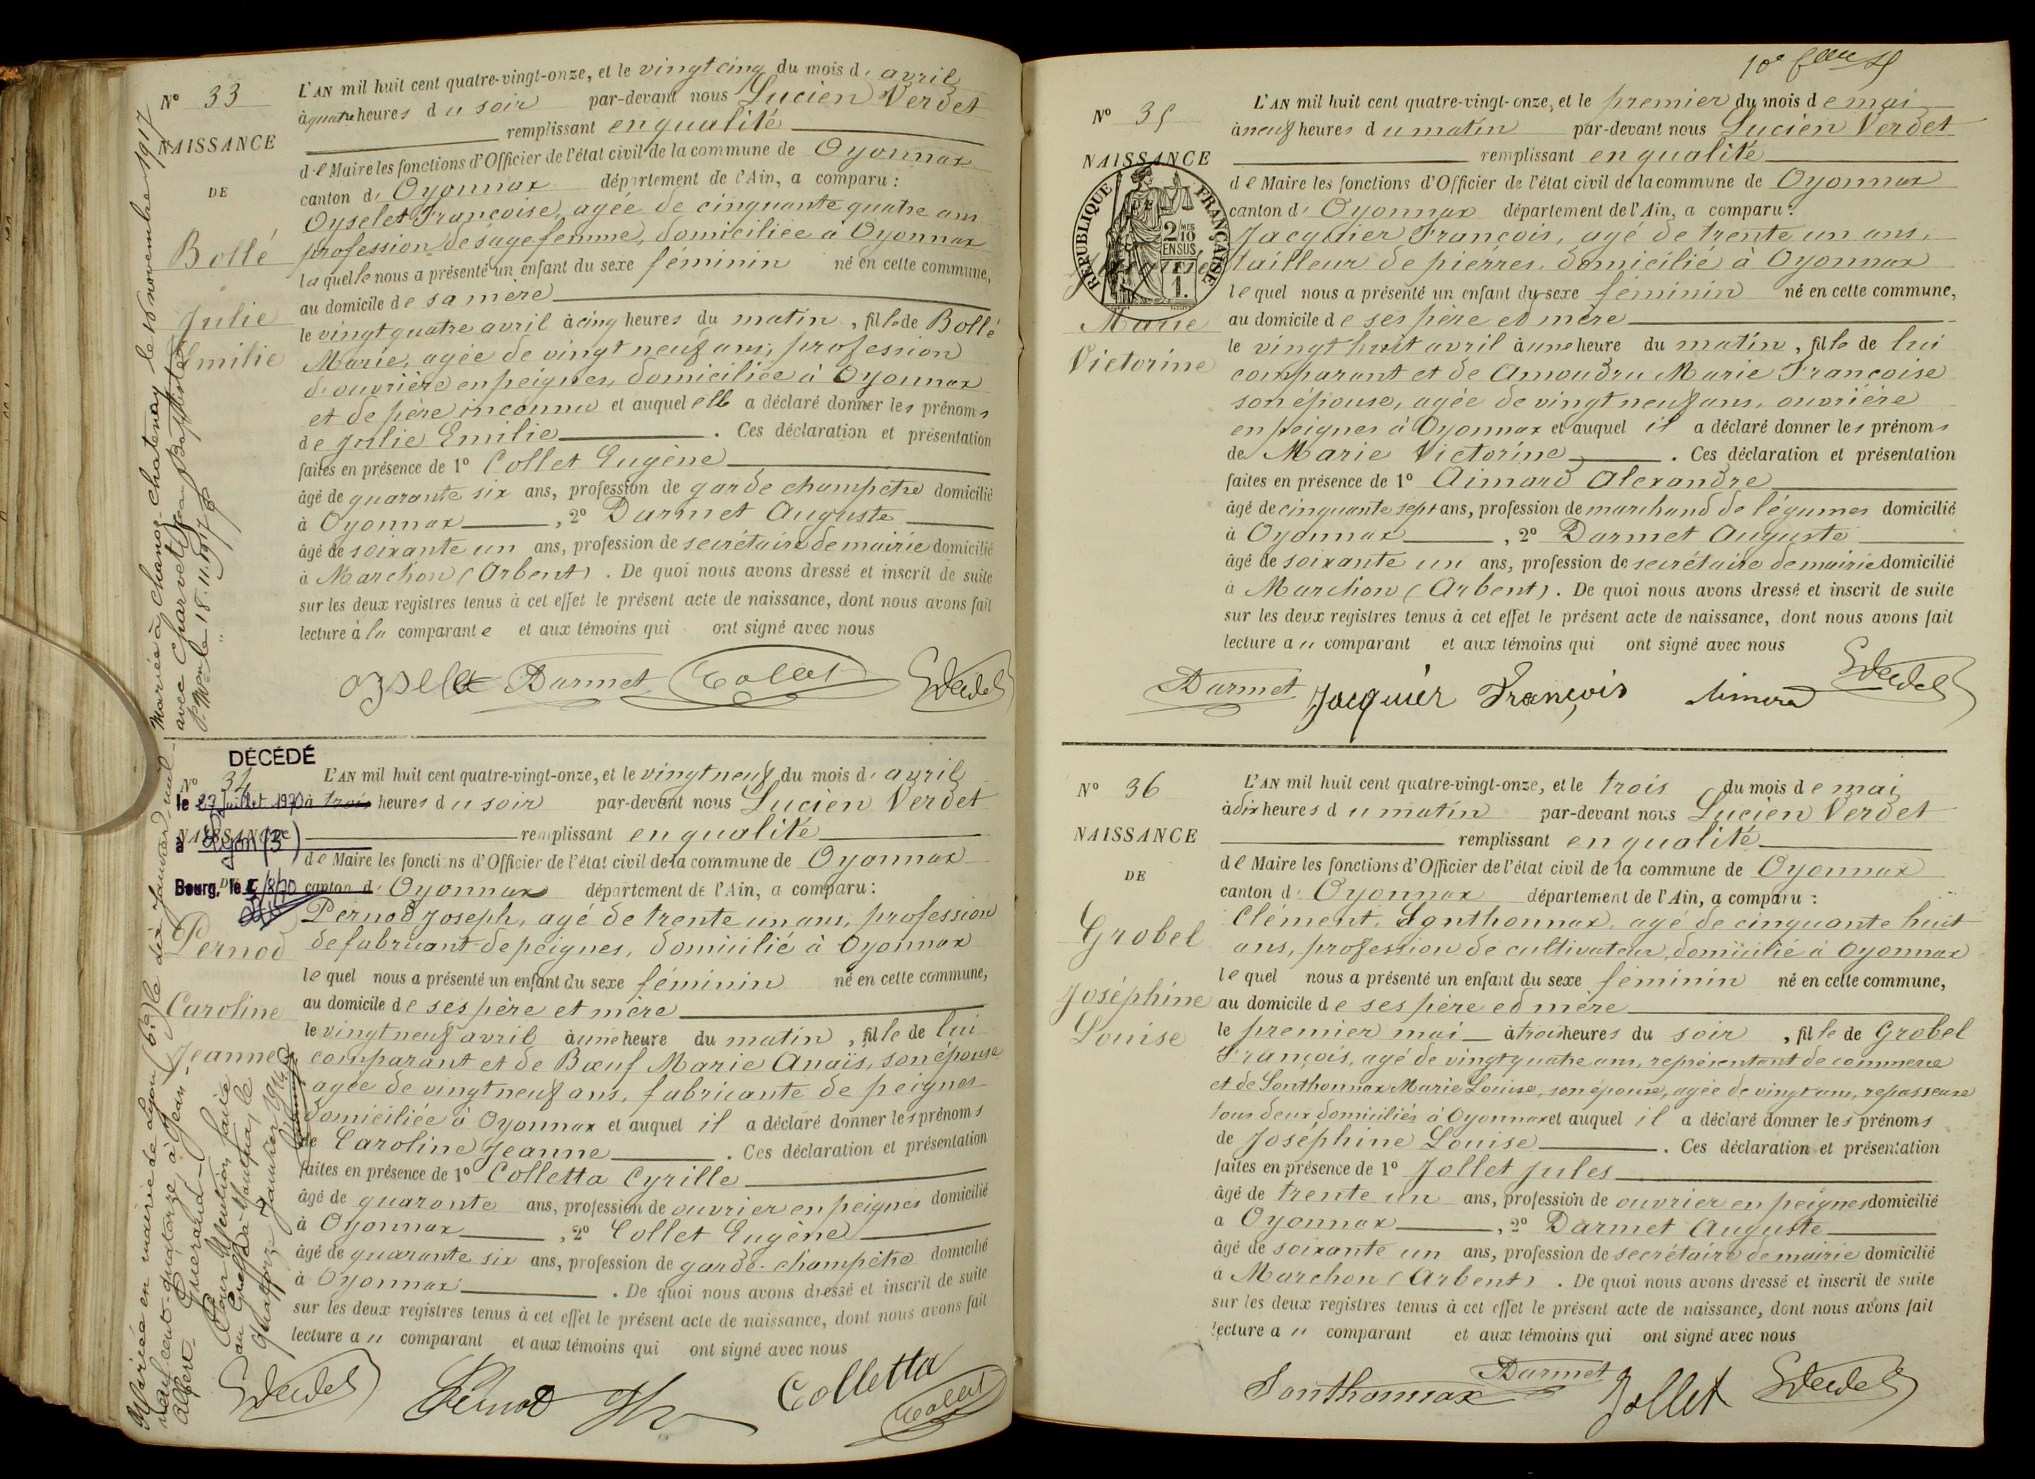 N° 33
NAISSANCE
DE
Bollé
Julie
Emilie
Mariée à Chanoz-Chatenay le 16 novembre 1917
avec Charvet Jean Baptiste
le 18.11.1917
L'AN mil huit cent quatre-vingt-onze, et le vingt cinq du mois d'avril
à quatre heures du soir par-devant nous Lucien Verdet
remplissant en qualité
de Maire les fonctions d'Officier de l'état civil de la commune de Oyonnax
canton d' Oyonnax département de l'Ain, a comparu :
Oyselet Françoise, agée de cinquante quatre ans
profession de sage femme, domiciliée à Oyonnax
laquelle nous a présenté un enfant du sexe féminin né en cette commune,
au domicile de sa mère
le vingt quatre avril à cinq heures du matin, fille de Bollé
Marie, agée de vingt neuf ans, profession
d'ouvrière en peignes, domiciliée à Oyonnax
et de père inconnu et auquel elle a déclaré donner les prénoms
de Julie Emilie . Ces déclaration et présentation
faites en présence de 1° Collet Eugène
âgé de quarante six ans, profession de garde champetre domicilié
à Oyonnax , 2° Darmet Auguste
âgé de soixante un ans, profession de secrétaire de mairie domicilié
à Marchon (Arbent) . De quoi nous avons dressé et inscrit de suite
sur les deux registres tenus à cet effet le présent acte de naissance, dont nous avons fait
lecture à la comparante et aux témoins qui ont signé avec nous
Oyselet Darmet Collet Verdet
DÉCÉDÉ
N° 34
le 27 juillet 1970
NAISSANCE
à Lyon (3e)
DE
Bourg, le 5/8/70
Pernod
Caroline
Jeanne
Mariée en mairie de Lyon (6e) le dix janvier mil
neuf cent quatorze à Jean
Albert Guerand
Pour Mention faite
au Greffe de Nantua, le
quatorze Janvier 1914
L'AN mil huit cent quatre-vingt-onze, et le vingt neuf du mois d'avril
à trois heures du soir par-devant nous Lucien Verdet
remplissant en qualité
de Maire les fonctions d'Officier de l'état civil de la commune de Oyonnax
canton d' Oyonnax département de l'Ain, a comparu :
Pernod Joseph, agé de trente un ans, profession
de fabricant de peignes, domicilié à Oyonnax
lequel nous a présenté un enfant du sexe féminin né en cette commune,
au domicile de ses père et mère
le vingt neuf avril à une heure du matin, fille de lui
comparant et de Bœuf Marie Anaïs, son épouse
agée de vingt neuf ans, fabricante de peignes
domiciliée à Oyonnax et auquel il a déclaré donner les prénoms
de Caroline Jeanne . Ces déclaration et présentation
faites en présence de 1° Colletta Cyrille
âgé de quarante ans, profession de ouvrier en peignes domicilié
à Oyonnax , 2° Collet Eugène
âgé de quarante six ans, profession de garde-champêtre domicilié
à Oyonnax . De quoi nous avons dressé et inscrit de suite
sur les deux registres tenus à cet effet le présent acte de naissance, dont nous avons fait
lecture au comparant et aux témoins qui ont signé avec nous
Verdet Pernod Colletta
Collet
10e
N° 35
NAISSANCE
RÉPUBLIQUE FRANÇAISE
2/10 MES
EN SUS
1.
Marie
Victorine
L'AN mil huit cent quatre-vingt-onze, et le premier du mois de mai
à neuf heures du matin par-devant nous Lucien Verdet
remplissant en qualité
de Maire les fonctions d'Officier de l'état civil de la commune de Oyonnax
canton d' Oyonnax département de l'Ain, a comparu :
Jacquier François, agé de trente un ans,
tailleur de pierres, domicilié à Oyonnax
lequel nous a présenté un enfant du sexe féminin né en cette commune,
au domicile de ses père et mère
le vingt huit avril à une heure du matin, fille de lui
comparant et de Amoudru Marie Françoise
son épouse, agée de vingt neuf ans, ouvrière
en peignes à Oyonnax et auquel il a déclaré donner les prénoms
de Marie Victorine . Ces déclaration et présentation
faites en présence de 1° Aimard Alexandre
âgé de cinquante sept ans, profession de marchand de légumes domicilié
à Oyonnax , 2° Darmet Auguste
âgé de soixante un ans, profession de secrétaire de mairie domicilié
à Marchon (Arbent). De quoi nous avons dressé et inscrit de suite
sur les deux registres tenus à cet effet le présent acte de naissance, dont nous avons fait
lecture au comparant et aux témoins qui ont signé avec nous
Darmet Jacquier François Aimard Verdet
N° 36
NAISSANCE
DE
Grobel
Joséphine
Louise
L'AN mil huit cent quatre-vingt-onze, et le trois du mois de mai
à dix heures du matin par-devant nous Lucien Verdet
remplissant en qualité
de Maire les fonctions d'Officier de l'état civil de la commune de Oyonnax
canton d' Oyonnax département de l'Ain, a comparu :
Clément Sonthonnax, agé de cinquante huit
ans, profession de cultivateur, domicilié à Oyonnax
lequel nous a présenté un enfant du sexe féminin né en cette commune,
au domicile de ses père et mère
le premier mai à trois heures du soir, fille de Grobel
François, agé de vingt quatre ans, représentant de commerce
et de Sonthonnax Marie Louise, son épouse, agée de vingt ans, repasseuse
tous deux domiciliés à Oyonnax et auquel il a déclaré donner les prénoms
de Joséphine Louise . Ces déclaration et présentation
faites en présence de 1° Jollet Jules
âgé de trente un ans, profession de ouvrier en peignes domicilié
à Oyonnax , 2° Darmet Auguste
âgé de soixante un ans, profession de secrétaire de mairie domicilié
à Marchon (Arbent) . De quoi nous avons dressé et inscrit de suite
sur les deux registres tenus à cet effet le présent acte de naissance, dont nous avons fait
lecture au comparant et aux témoins qui ont signé avec nous
Sonthonnax Darmet Jollet Verdet